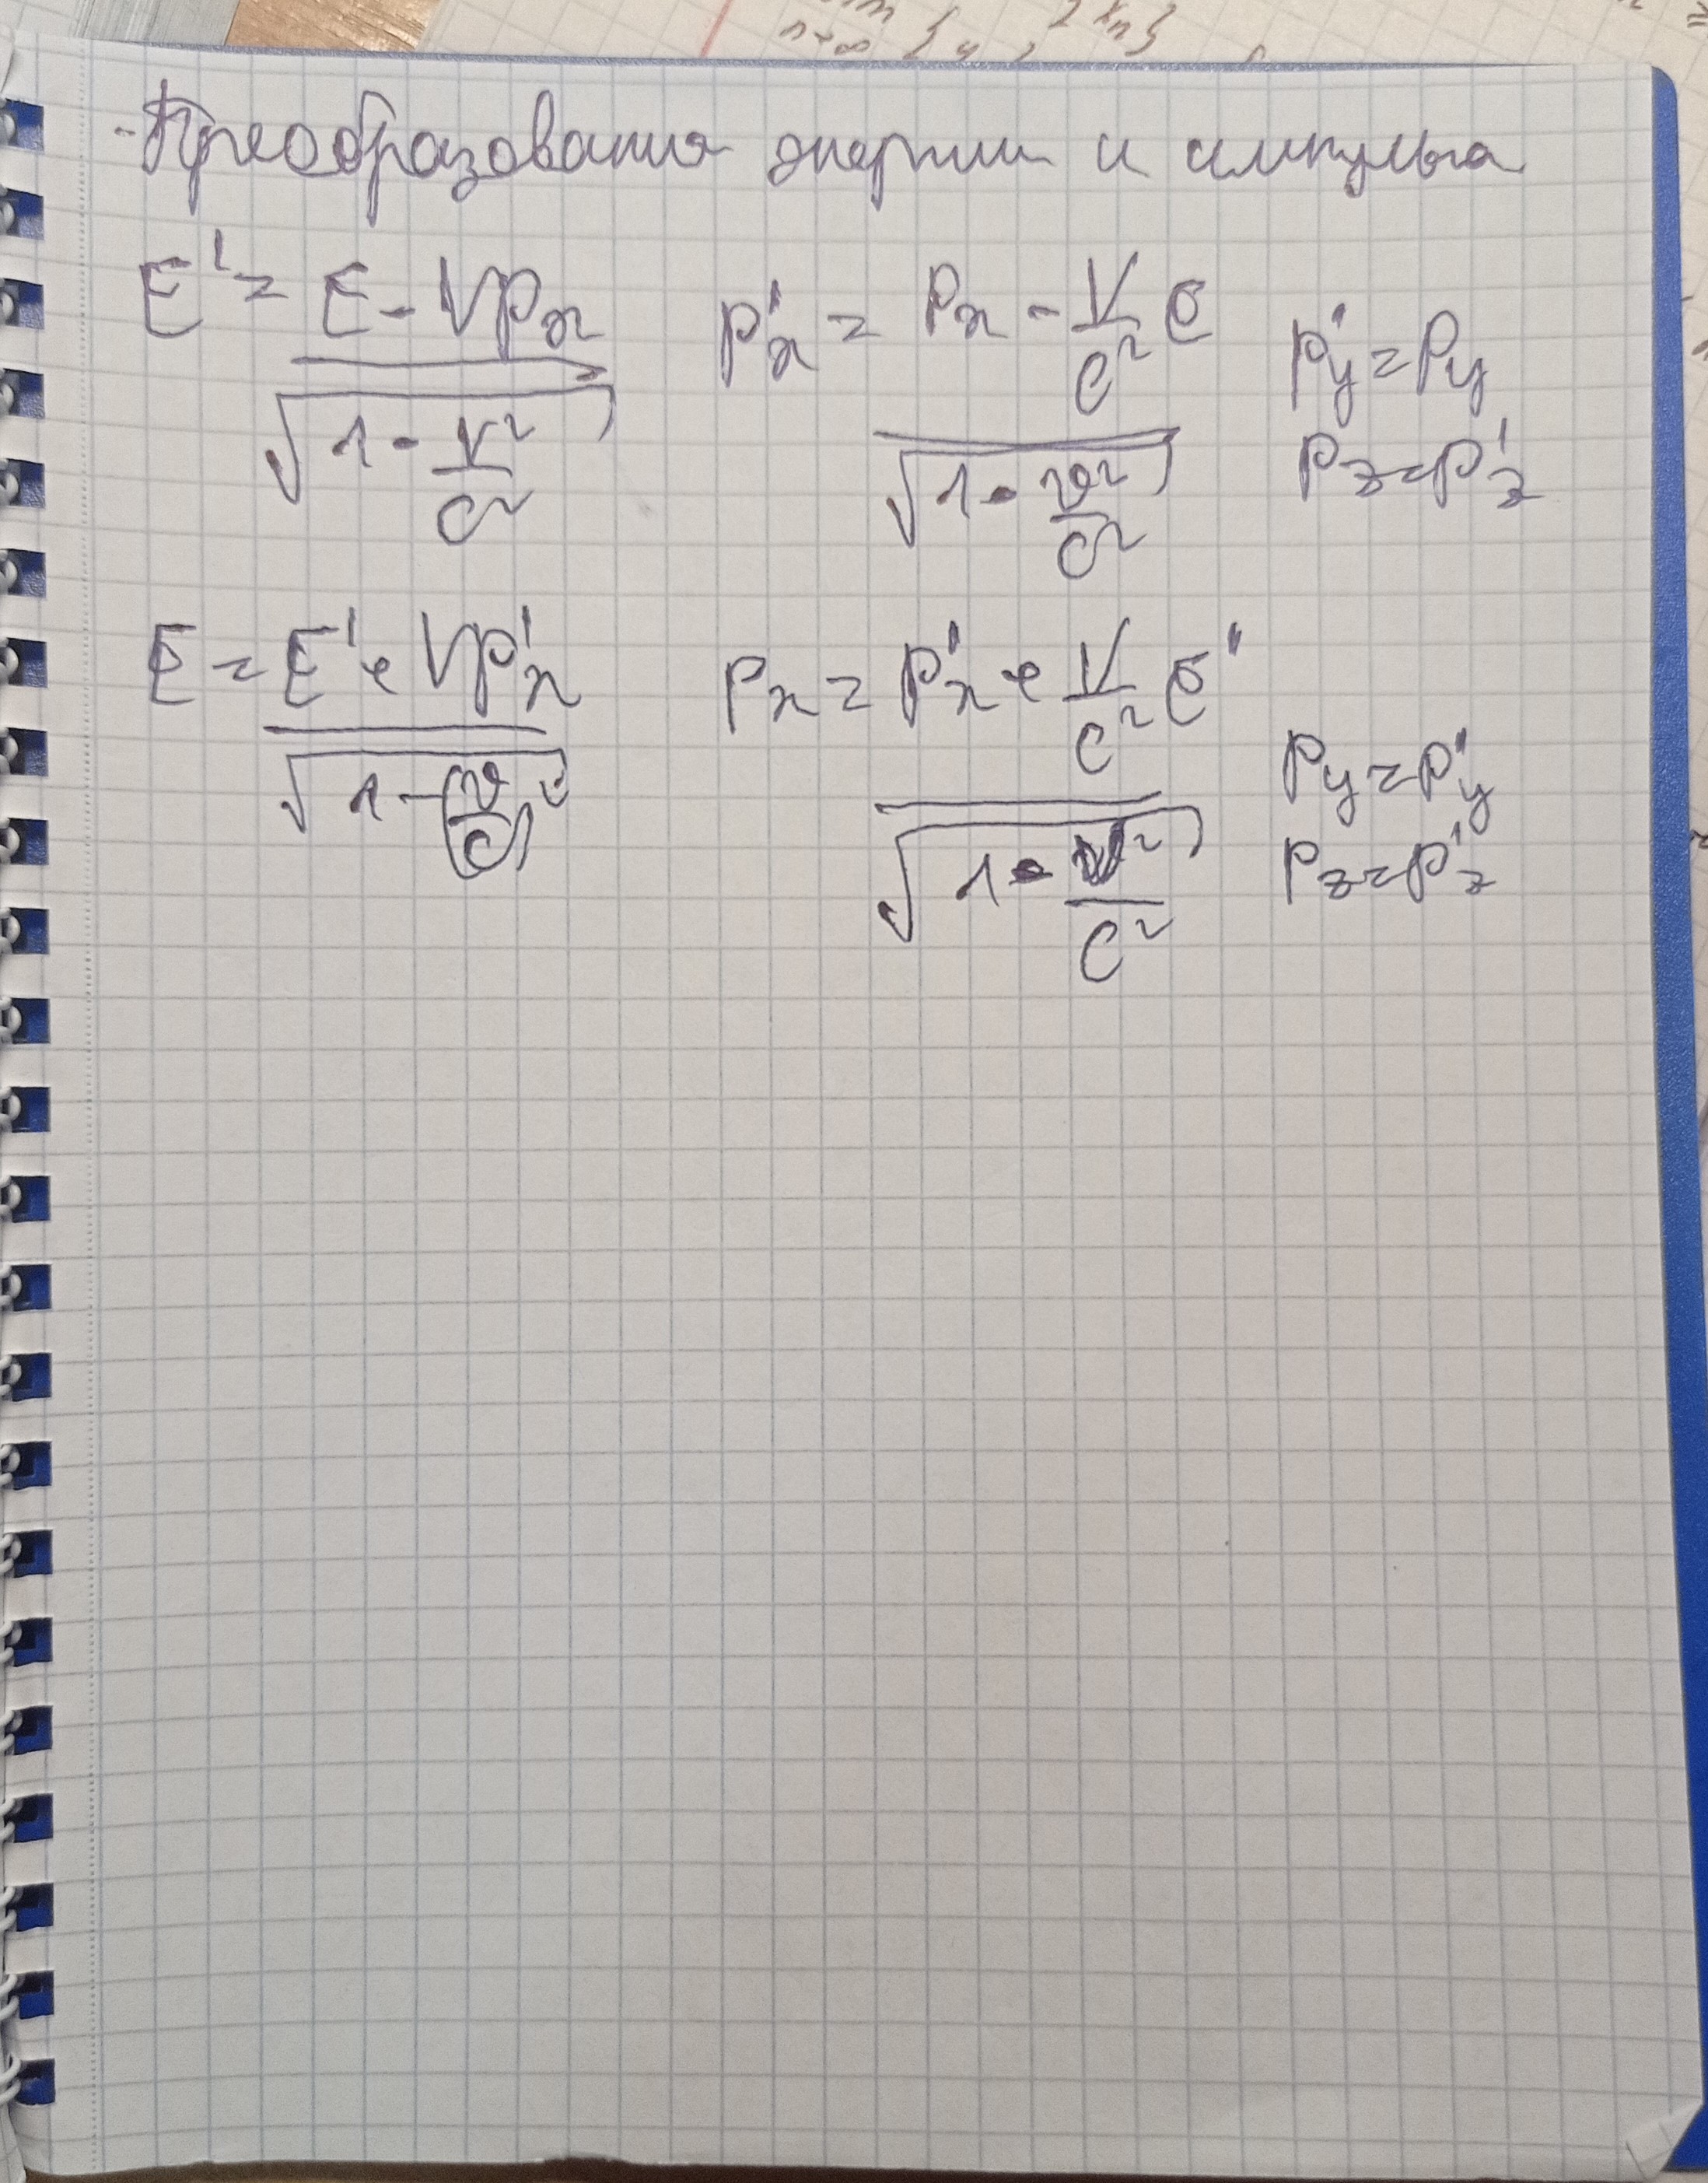 lim {x_n}
n→∞
- Преобразования энергии и импульса
E' = (E - Vp_x) / √(1 - V²/c²)   p'_x = (p_x - V/c² E) / √(1 - v²/c²)   p'_y = p_y
p_z = p'_z
E = (E' + Vp'_x) / √(1 - (v/c)²)   p_x = (p'_x + V/c² E') / √(1 - v²/c²)   p_y = p'_y
p_z = p'_z